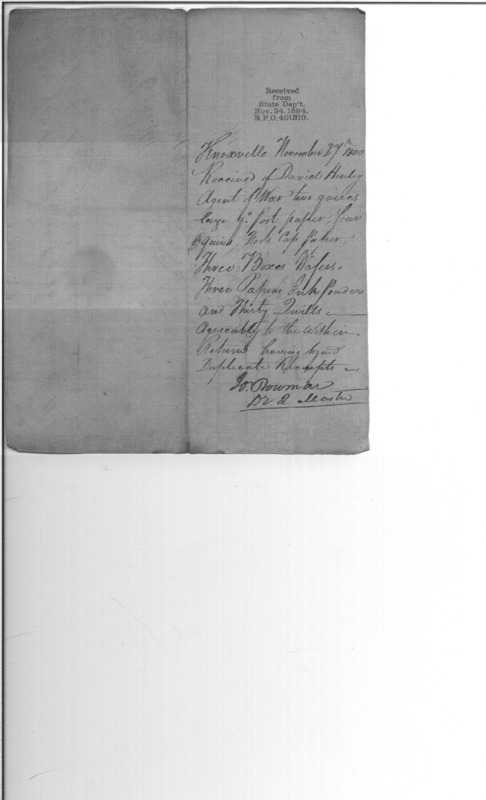 Received
from
State Dep't.
Nov. 24. 1894.
R.P.O. 401810.
Knoxville November 27th 1800
Received of David Henley
Agent of War two quires
large post paper; four
quires Fools Cap Paper,
Three Boxes Wafers,
Three Papers Ink Powder
and Thirty Quills
Agreeably to the within
Return having signed
Duplicate Receipts
Bowmar
Master